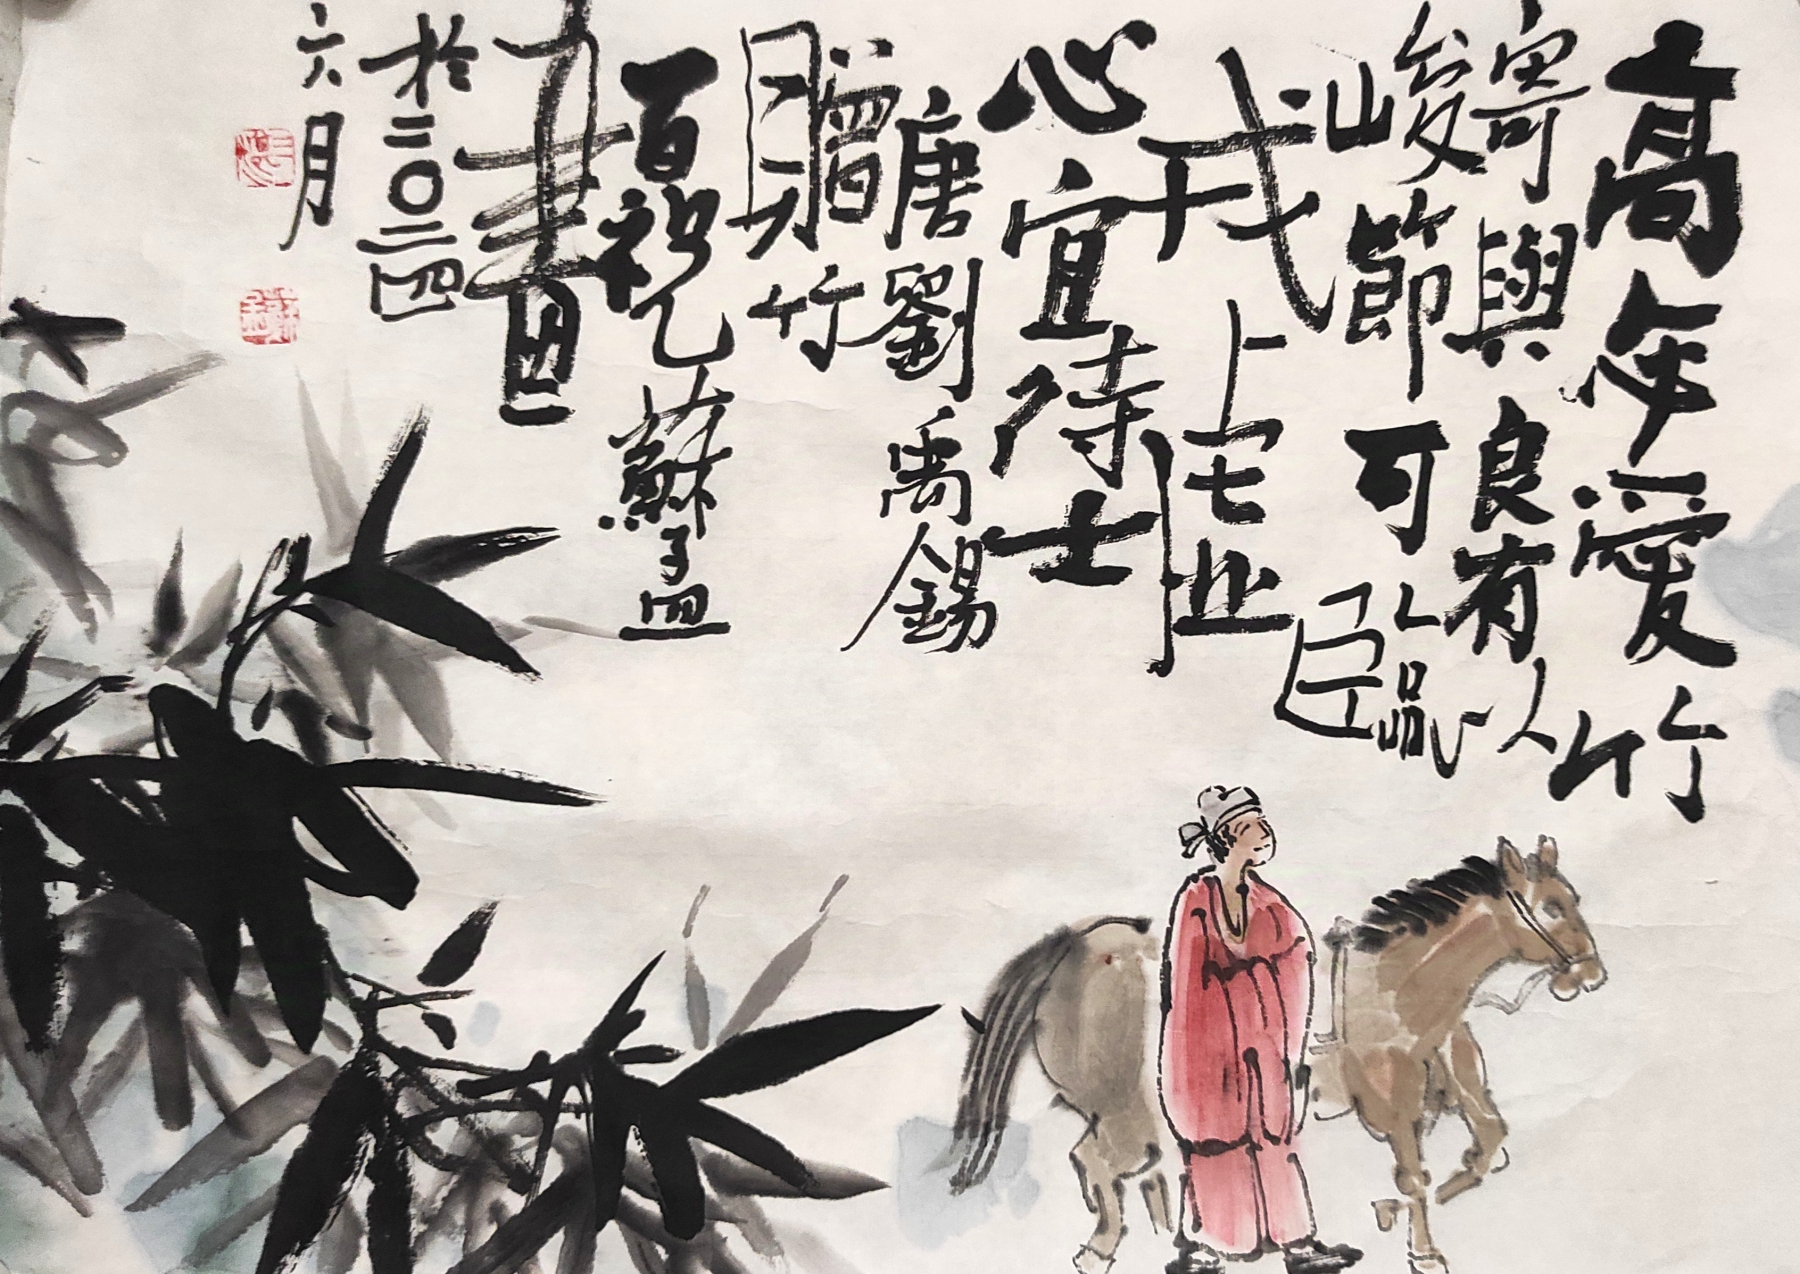 高人必愛竹
寄興良有以
峻節可臨
戎虛
心宜待士
唐劉禹錫
贈竹
百祝乙蘇孟
畫
於二〇二四
六月